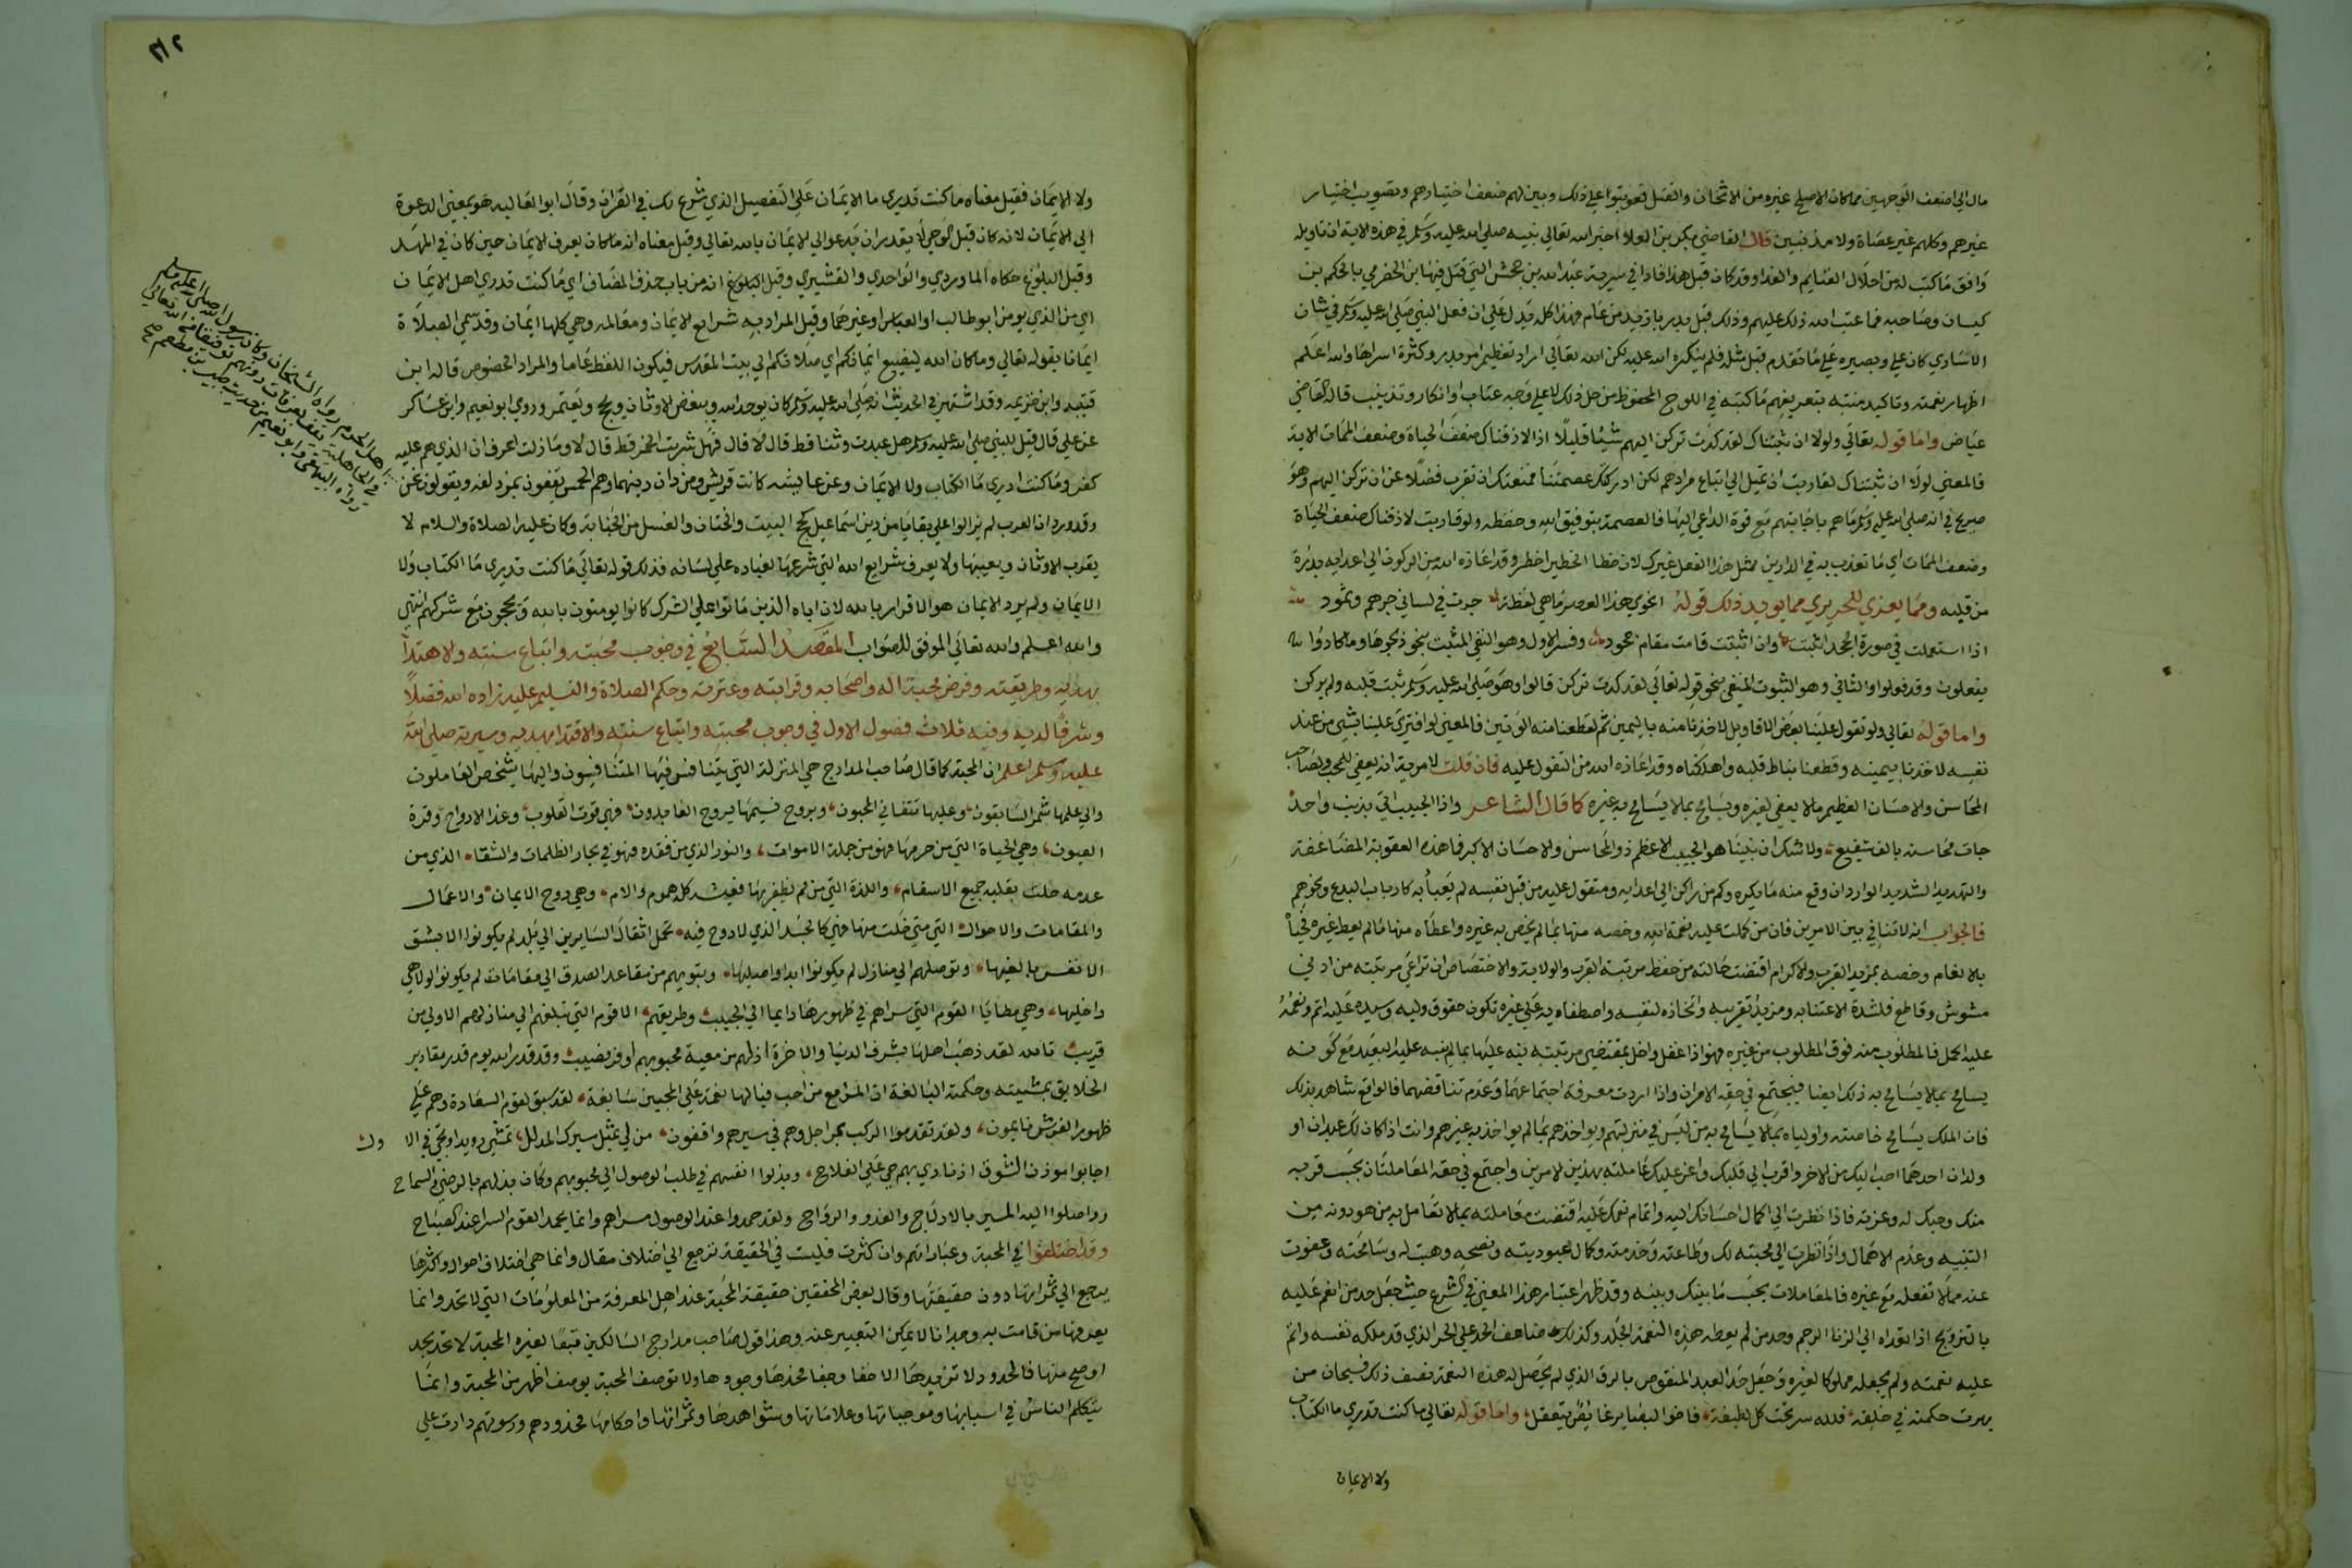 مال الي اضعف الوجهين مما كان الاصلح غيره من الاثخان والقتل فعوتبوا علي ذلك وبين لهم ضعف اختيارهم وتصويب اختيار
غيرهم وكلهم غير عصاة ولا مذنبين قال القاضي بكر بن العلاء اخبر الله تعالي نبيه صلي الله عليه وسلم في هذه الاية ان تاويله
وافق ما كتب له من احلال الغنايم والفدا وقد كان قبل هذا فادا في سرية عبد الله بن جحش التي قتل فيها ابن الحضرمي بالحكم بن
كيسان وصاحبه فما عتب الله ذلك عليهم وذلك قبل بدر بازيد من عام فهذا كله يدل علي ان فعل النبي صلي الله عليه وسلم في شان
الاساري كان علي وبصيره علي ما تقدم قبل مثله فلم ينكره الله عليه لكن الله تعالي اراد تعظيم امر بدر وكثرة اسراها والله اعلم
اظهار نعمته وتاكيد منته بتعريفهم ما كتبه في اللوح المحفوظ من حل ذلك لا علي وجه عتاب او انكار وتذنيب قال القاضي
عياض واما قوله تعالي ولولا ان ثبتناك لقد كدت تركن اليهم شيئا قليلا اذا لاذقناك ضعف الحياة وضعف الممات الاية
فالمعني لولا ان ثبتناك لقاربت ان تميل الي اتباع مرادهم لكن ادركتك عصمتنا فمنعتك ان تقرب فضلا عن ان تركن اليهم وهو
صريح في انه صلي الله عليه وسلم ما هم باجابتهم مع قوة الداعي اليها فالعصمة بتوفيق الله وحفظه ولو قاربت لاذقناك ضعف الحياة
وضعف الممات اي ما نعذب به في الدارين بمثل هذا الفعل غيرك لان خطا الخطير اخطر وقد اعاذه الله من الركون الي اعدايه بذرة
من قلبه ومما يعزي للحريري مما يويد ذلك قوله انحوي هذا العصر ما هي لفظة جرت في لساني جرهم وثمود
اذا استعملت في صورة الجحد اثبتت وان اثبتت قامت مقام جحود وفسر الاول وهو النفي المثبت بنحو ذبحوها وما كادوا
يفعلون وقد فعلوا والثاني وهو الثبوت المنفي بنحو قوله تعالي لقد كدت تركن قالوا وهو صلي الله عليه وسلم ثبت قلبه ولم يركن
واما قوله تعالي ولو تقول علينا بعض الاقاويل لاخذنا منه باليمين ثم لقطعنا منه الوتين فالمعني لو افتري علينا بشي من عند
نفسه لاخذنا بيمينه وقطعنا نياط قلبه واهلكناه وقد اعاذه الله من التقول عليه فان قلت لا مرية انه يعفي للمحب ولصاحب
المحاسن والاحسان العظيم ما لا يعفي لغيره ويسامح بما لا يسامح به غيره كما قال الشاعر واذا الحبيب اتي بذنب واحد
جات محاسنه بالف شفيع ولا شك ان نبينا هو الحبيب الاعظم ذو المحاسن والاحسان الاكبر فما هذه العقوبة المضاعفة
والتهديد الشديد الواردان وقع منه ما يكره وكم من راكن الي اعدايه ومتقول عليه من قبل نفسه لم يعبأ به كارباب البدع ونحوهم
فالجواب انه لا تنافي بين الامرين فان من كملت عليه نعمة الله وخصه منها بما لم يخص به غيره واعطاه منها ما لم يعط غيره فحباه
بالانعام وخصه بمزيد القرب والاكرام اقتضت حالته من حفظ مرتبة القرب والولاية والاختصاص ان تراعي مرتبته من ادني
مشوش وقاطع فلشدة الاعتنا به ومزيد تقريبه واتخاذه لنفسه واصطفايه علي غيره تكون حقوق وليه وسيده عليه اتم ونعمه
عليه اكمل فالمطلوب منه فوق المطلوب من غيره فهو اذا غفل واخل بمقتضي مرتبته نبه عليها بما لم ينبه عليه البعيد مع كونه
يسامح بما لا يسامح به ذلك ايضا فيجتمع في حقه الامران واذا اردت معرفة اجتماعهما وعدم تناقضهما فالواقع شاهد بذلك
فان الملك يسامح خاصته واولياه بما لا يسامح به من ليس في منزلتهم ويواخذهم بما لم يواخذ به غيرهم وانت اذا كان لك عبدان او
ولدان احدهما احب اليك من الاخر واقرب الي قلبك واعز عليك عاملته بهذين الامرين واجتمع في حقه المعاملتان بحسب قربه
منك وحبك له وعزته فاذا نظرت الي اكمال احسانك اليه واتمام نعمتك عليه اقتضت معاملته بما لا تعامل به من هو دونه من
التنبيه وعدم الاهمال واذا نظرت الي محبته لك وطاعته وخدمته وكمال عبوديته ونصحه وهبت له وسامحته وعفوت
عنه مما لا تفعله مع غيره فالمعاملات بحسب ما بينك وبينه وقد ظهر اعتبار هذا المعني في الشرع حيث جعل حد من انعم عليه
بالتزويج اذا تعداه الي الزنا الرجم وحد من لم يعطه هذه النعمة الجلد وكذلك ضاعف الحد علي الحر الذي قد ملكه نفسه واتم
عليه نعمته ولم يجعله مملوكا لغيره وجعل حد العبد المنقوص بالرق الذي لم يحصل له هذه النعمة نصف ذلك فسبحان من
بهرت حكمته في خلقه فلله سر تحت كل لطيفة فاخوا البصاير غايص يتعقل واما قوله تعالي ما كنت تدري ما الكتاب
ولا الايمان
٣١٢
ولا الايمان فقيل معناه ما كنت تدري ما الايمان علي التفصيل الذي شرع لك في القران وقال ابو العاليه هو بمعني الدعوة
الي الايمان لانه كان قبل الوحي لا يقدر ان يدعوا الي الايمان بالله تعالي وقيل معناه انه ما كان يعرف الايمان حين كان في المهد
وقبل البلوغ حكاه الماوردي والواحدي والقشيري وقيل انه من باب حذف المضاف اي ما كنت تدري اهل الايمان
اي من الذي يومن ابو طالب او العباس او غيرهما وقيل المراد به شرايع الايمان ومعالمه وهي كلها ايمان وقد سمي الصلاة
ايمانا بقوله تعالي وما كان الله ليضيع ايمانكم اي صلاتكم الي بيت المقدس فيكون اللفظ عاما والمراد الخصوص قاله ابن
قتيبه وابن خزيمه وقد اشتهر في الحديث انه صلي الله عليه وسلم كان يوحد الله ويبغض الاوثان ويحج ويعتمر وروي ابو نعيم وابن عساكر
عن علي قال قيل للنبي صلي الله عليه وسلم هل عبدت وثنا قط قال لا قال فهل شربت الخمر قط قال لا وما زلت اعرف ان الذي هم عليه
كفر وما كنت ادري ما الكتاب ولا الايمان وعن عايشه كانت قريش ومن دان دينهم وهم الحمس يقفون بمزدلفه ويقولون نحن
اهل الحرم رواه الشيخان وكان رسول الله صلي الله عليه وسلم
في الجاهلية يقف بعرفات دونهم توفيقا من الله تعالي
رواه البيهقي وابو نعيم من حديث جبير بن مطعم صح
وقد ورد ان العرب لم يزالوا علي بقايا من دين اسماعيل كحج البيت والختان والغسل من الجنابة وكان عليه الصلاة والسلام لا
يقرب الاوثان ويعيبها ولا يعرف شرايع الله التي شرعها لعباده علي لسانه فذلك قوله تعالي ما كنت تدري ما الكتاب ولا
الايمان ولم يرد الايمان هو الاقرار بالله لان اباه الذين ماتوا علي الشرك كانوا يومنون بالله ويحجون مع شركهم انتهي
والله اعلم والله تعالي الموفق للصواب المقصد السابع في وجوب محبته واتباع سنته والاهتدا
بهديه وطريقته وفرض محبة اله واصحابه وقرابته وعترته وحكم الصلاة والتسليم عليه زاده الله فضلا
وشرفا لديه وفيه ثلاث فصول الاول في وجوب محبته واتباع سنته والاقتدا بهديه وسيرته صلي الله
عليه وسلم اعلم ان المحبة كما قال صاحب المدارج هي المنزلة التي يتنافس فيها المتنافسون واليها يشخص العاملون
والي علمها شمر السابقون وعليها تتفاني المحبون وبروح نسيمها يروح العابدون فهي قوت القلوب وغذا الارواح وقرة
العيون وهي الحياة التي من حرمها فهو من جملة الاموات والنور الذي من فقده فهو في بحار الظلمات والشفا الذي من
عدمه حلت بقلبه جميع الاسقام واللذة التي من لم يظفر بها فعيشه كله هموم والام وهي روح الايمان والاعمال
والمقامات والاحوال التي متي خلت منها فهي كالجسد الذي لا روح فيه تحمل اثقال السايرين الي بلد لم يكونوا الا بشق
الانفس بالغيها وتوصلهم الي منازل لم يكونوا ابدا واصليها وتبويهم من مقاعد الصدق الي مقامات لم يكونوا لولا هي
داخليها وهي مطايا القوم التي سراهم في ظهورها دايما الي الحبيب وطريقهم الاقوم التي تبلغهم الي منازلهم الاولي من
قريب تالله لقد ذهب اهلها بشرف الدنيا والاخرة اذ لهم من معية محبوبهم اوفر نصيب وقد قدر الله يوم قدر مقادير
الخلايق بمشيته وحكمته البالغة ان المرا مع من احب فيالها نعمة علي المحبين سابغة لقد سبق لقوم السعادة وهم علي
ظهور الفرش نايمون ولقد تقدموا الركب بمراحل وهم في سيرهم واقفون من لي بمثل سيرك المدلل تمشي رويدا وتجي في الاول
اجابوا موذن الشوق اذ نادي بهم حي علي الفلاح وبذلوا انفسهم في طلب الوصول الي محبوبهم وكان بذلهم بالرضي والسماح
وواصلوا اليه المسير بالادلاج والغدو والرواح ولقد حمدوا عند الوصول سراهم وانما يحمد القوم السرا عند الصباح
وقد اختلفوا في المحبة وعباراتهم وان كثرت فليست في الحقيقة ترجع الي اختلاف مقال وانما هي اختلاف احوال واكثرها
يرجع الي ثمراتها دون حقيقتها وقال بعض المحققين حقيقة المحبة عند اهل المعرفة من المعلومات التي لا تحد وانما
يعرفها من قامت به وجدانا لا يمكن التعبير عنه وهذا قول صاحب مدارج السالكين تبعا لغيره المحبة لا تحد بحد
اوضح منها فالحدود لا تزيدها الا خفا وجفا فحدها وجودها ولا توصف المحبة بوصف اظهر من المحبة وانما
يتكلم الناس في اسبابها وموجباتها وعلاماتها وشواهدها وثمراتها واحكامها فحدودهم ورسومهم دارت علي